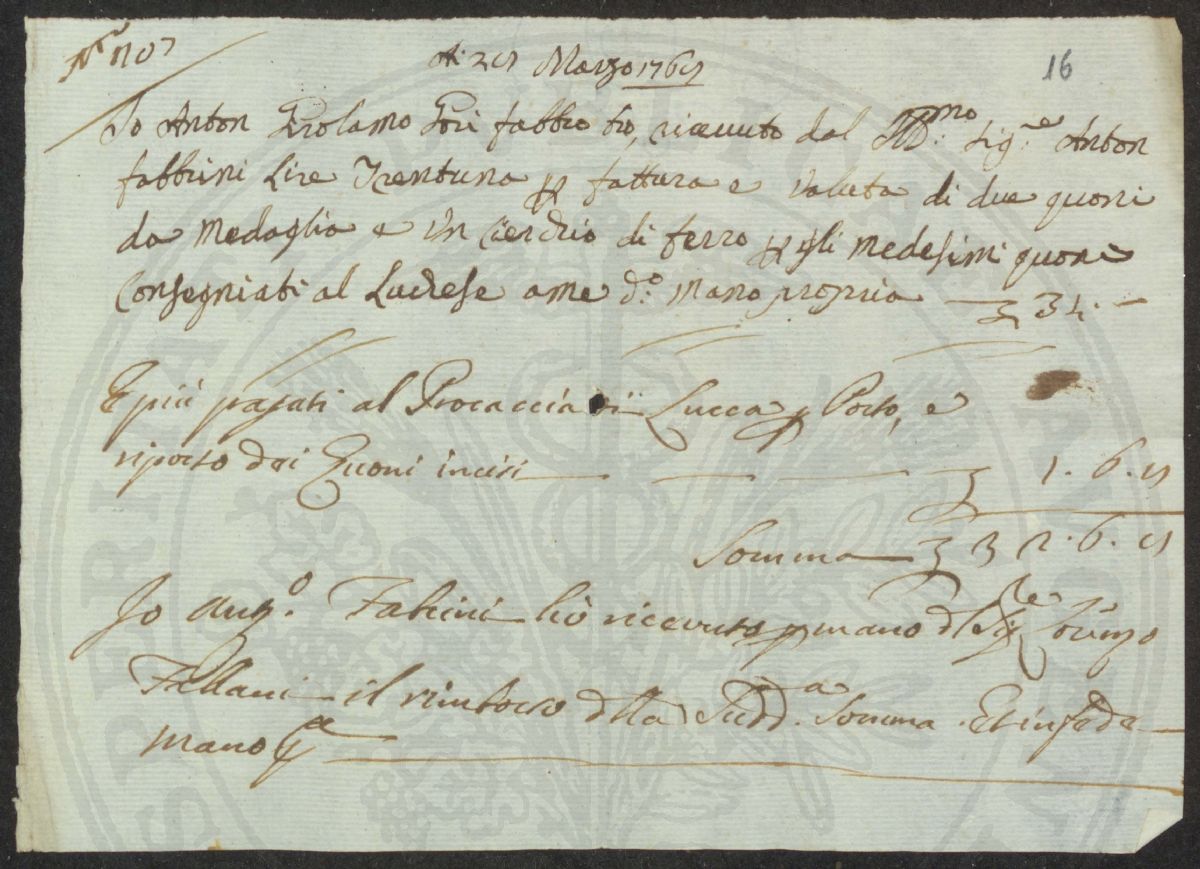 Nro 107
A: 29 Marzo 1769
16
Io Anton Girolamo Gori fabbro ho, riceuuto dal Ill.mo Sig.re Anton
fabbrini Lire Trentuna p fattura e Valuta di due quoni
da Medaglia e Un Cierchio di ferro p gli Medesimi quoni
Consegniati al Luchese a me d.o Mano propria 31. —
E più pagati al Procaccia di Lucca p Porto, e
riporto dei Cuoni incisi 1. 6. 8
Somma 32. 6. 8
Io Ang.o Fabrini hò riceuuto p mano del Sig.re Lorenzo
Fallani il rimborso della Sudd.a Somma. Et in fede
Mano p.a
SPERITAS PUBLICA AUGE